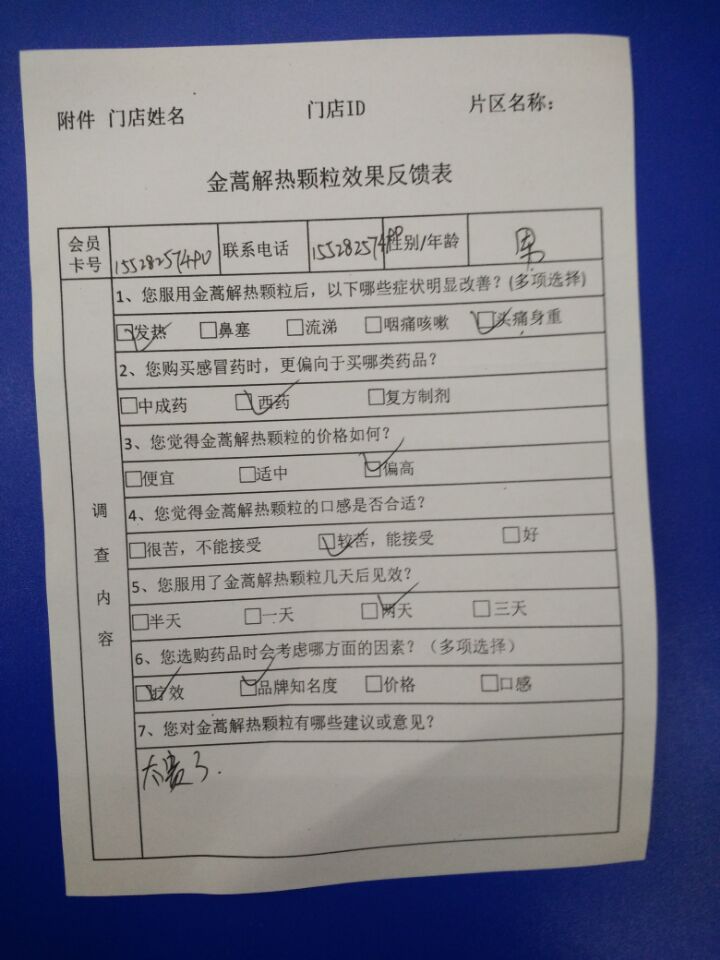 附件 门店姓名 门店ID 片区名称：
金蒿解热颗粒效果反馈表
会员卡号 联系电话 性别/年龄 男
1、您服用金蒿解热颗粒后，以下哪些症状明显改善？(多项选择)
□发热 □鼻塞 □流涕 □咽痛咳嗽 □头痛身重
2、您购买感冒药时，更偏向于买哪类药品？
□中成药 □西药 □复方制剂
3、您觉得金蒿解热颗粒的价格如何？
□便宜 □适中 □偏高
调查内容
4、您觉得金蒿解热颗粒的口感是否合适？
□很苦，不能接受 □较苦，能接受 □好
5、您服用了金蒿解热颗粒几天后见效？
□半天 □一天 □两天 □三天
6、您选购药品时会考虑哪方面的因素？（多项选择）
□疗效 □品牌知名度 □价格 □口感
7、您对金蒿解热颗粒有哪些建议或意见？
太贵了.